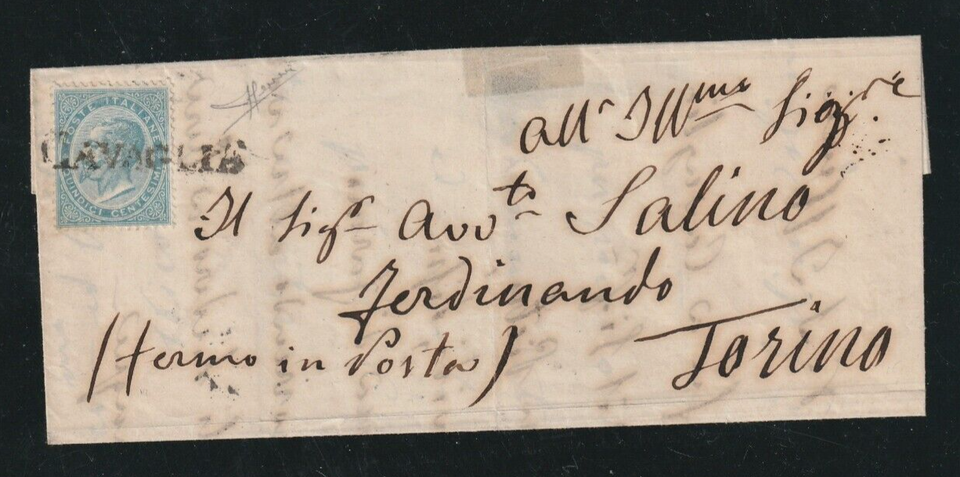 POSTE ITALIANE
CAVAGLIÀ
QUINDICI CENTESIMI
all' Illmo Sigre
Il Sigr Avvto Salino
Ferdinando
(fermo in Posta) Torino